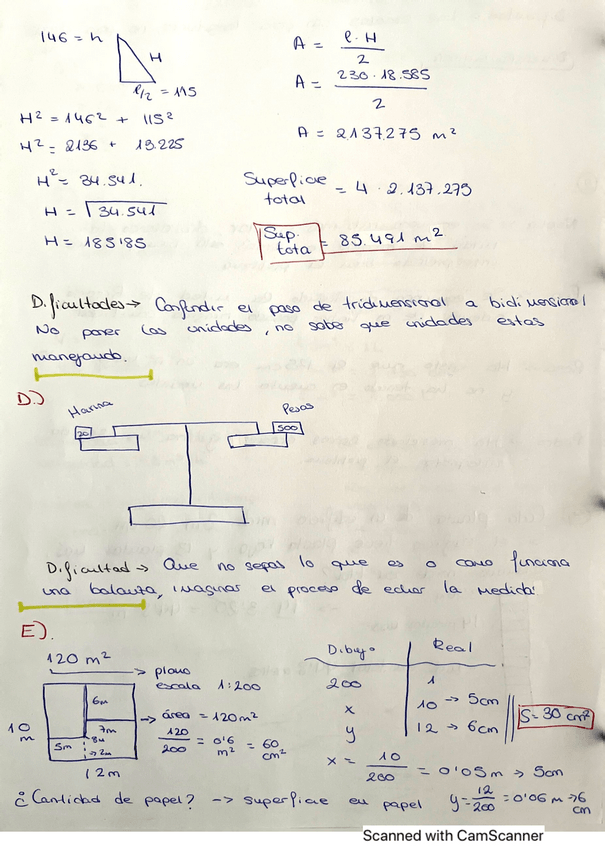 146 = h
H
l/2 = 115
H² = 146² + 115²
H² = 2136 + 13.225
H² = 34.541.
H = √34.541
H = 185'85
A = l · H / 2
A = 230 · 18.585 / 2
A = 2137.275 m²
Superficie total = 4 · 2.137.275
Sup. tota = 85.491 m²
Dificultades → Confundir el paso de tridimensional a bidimensional
No poner las unidades, no saber que unidades estas
manejando.
D.)
Harina
Pesas
20
500
Dificultad → Que no sepas lo que es o como funciona
una balanza, imaginar el proceso de echar la medida.
E).
120 m²
→ plano
escala 1:200
6m
7m
5m
8m
→ 2m
10 m
12m
→ área = 120m²
120/200 = 0'6 m² = 60 cm²
Dibujo | Real
200 | 1
x | 10 → 5cm
y | 12 → 6cm
S = 30 cm²
x = 10/200 = 0'05 m → 5cm
¿Cantidad de papel? → superficie en papel y = 12/200 = 0'06 m → 6 cm
Scanned with CamScanner